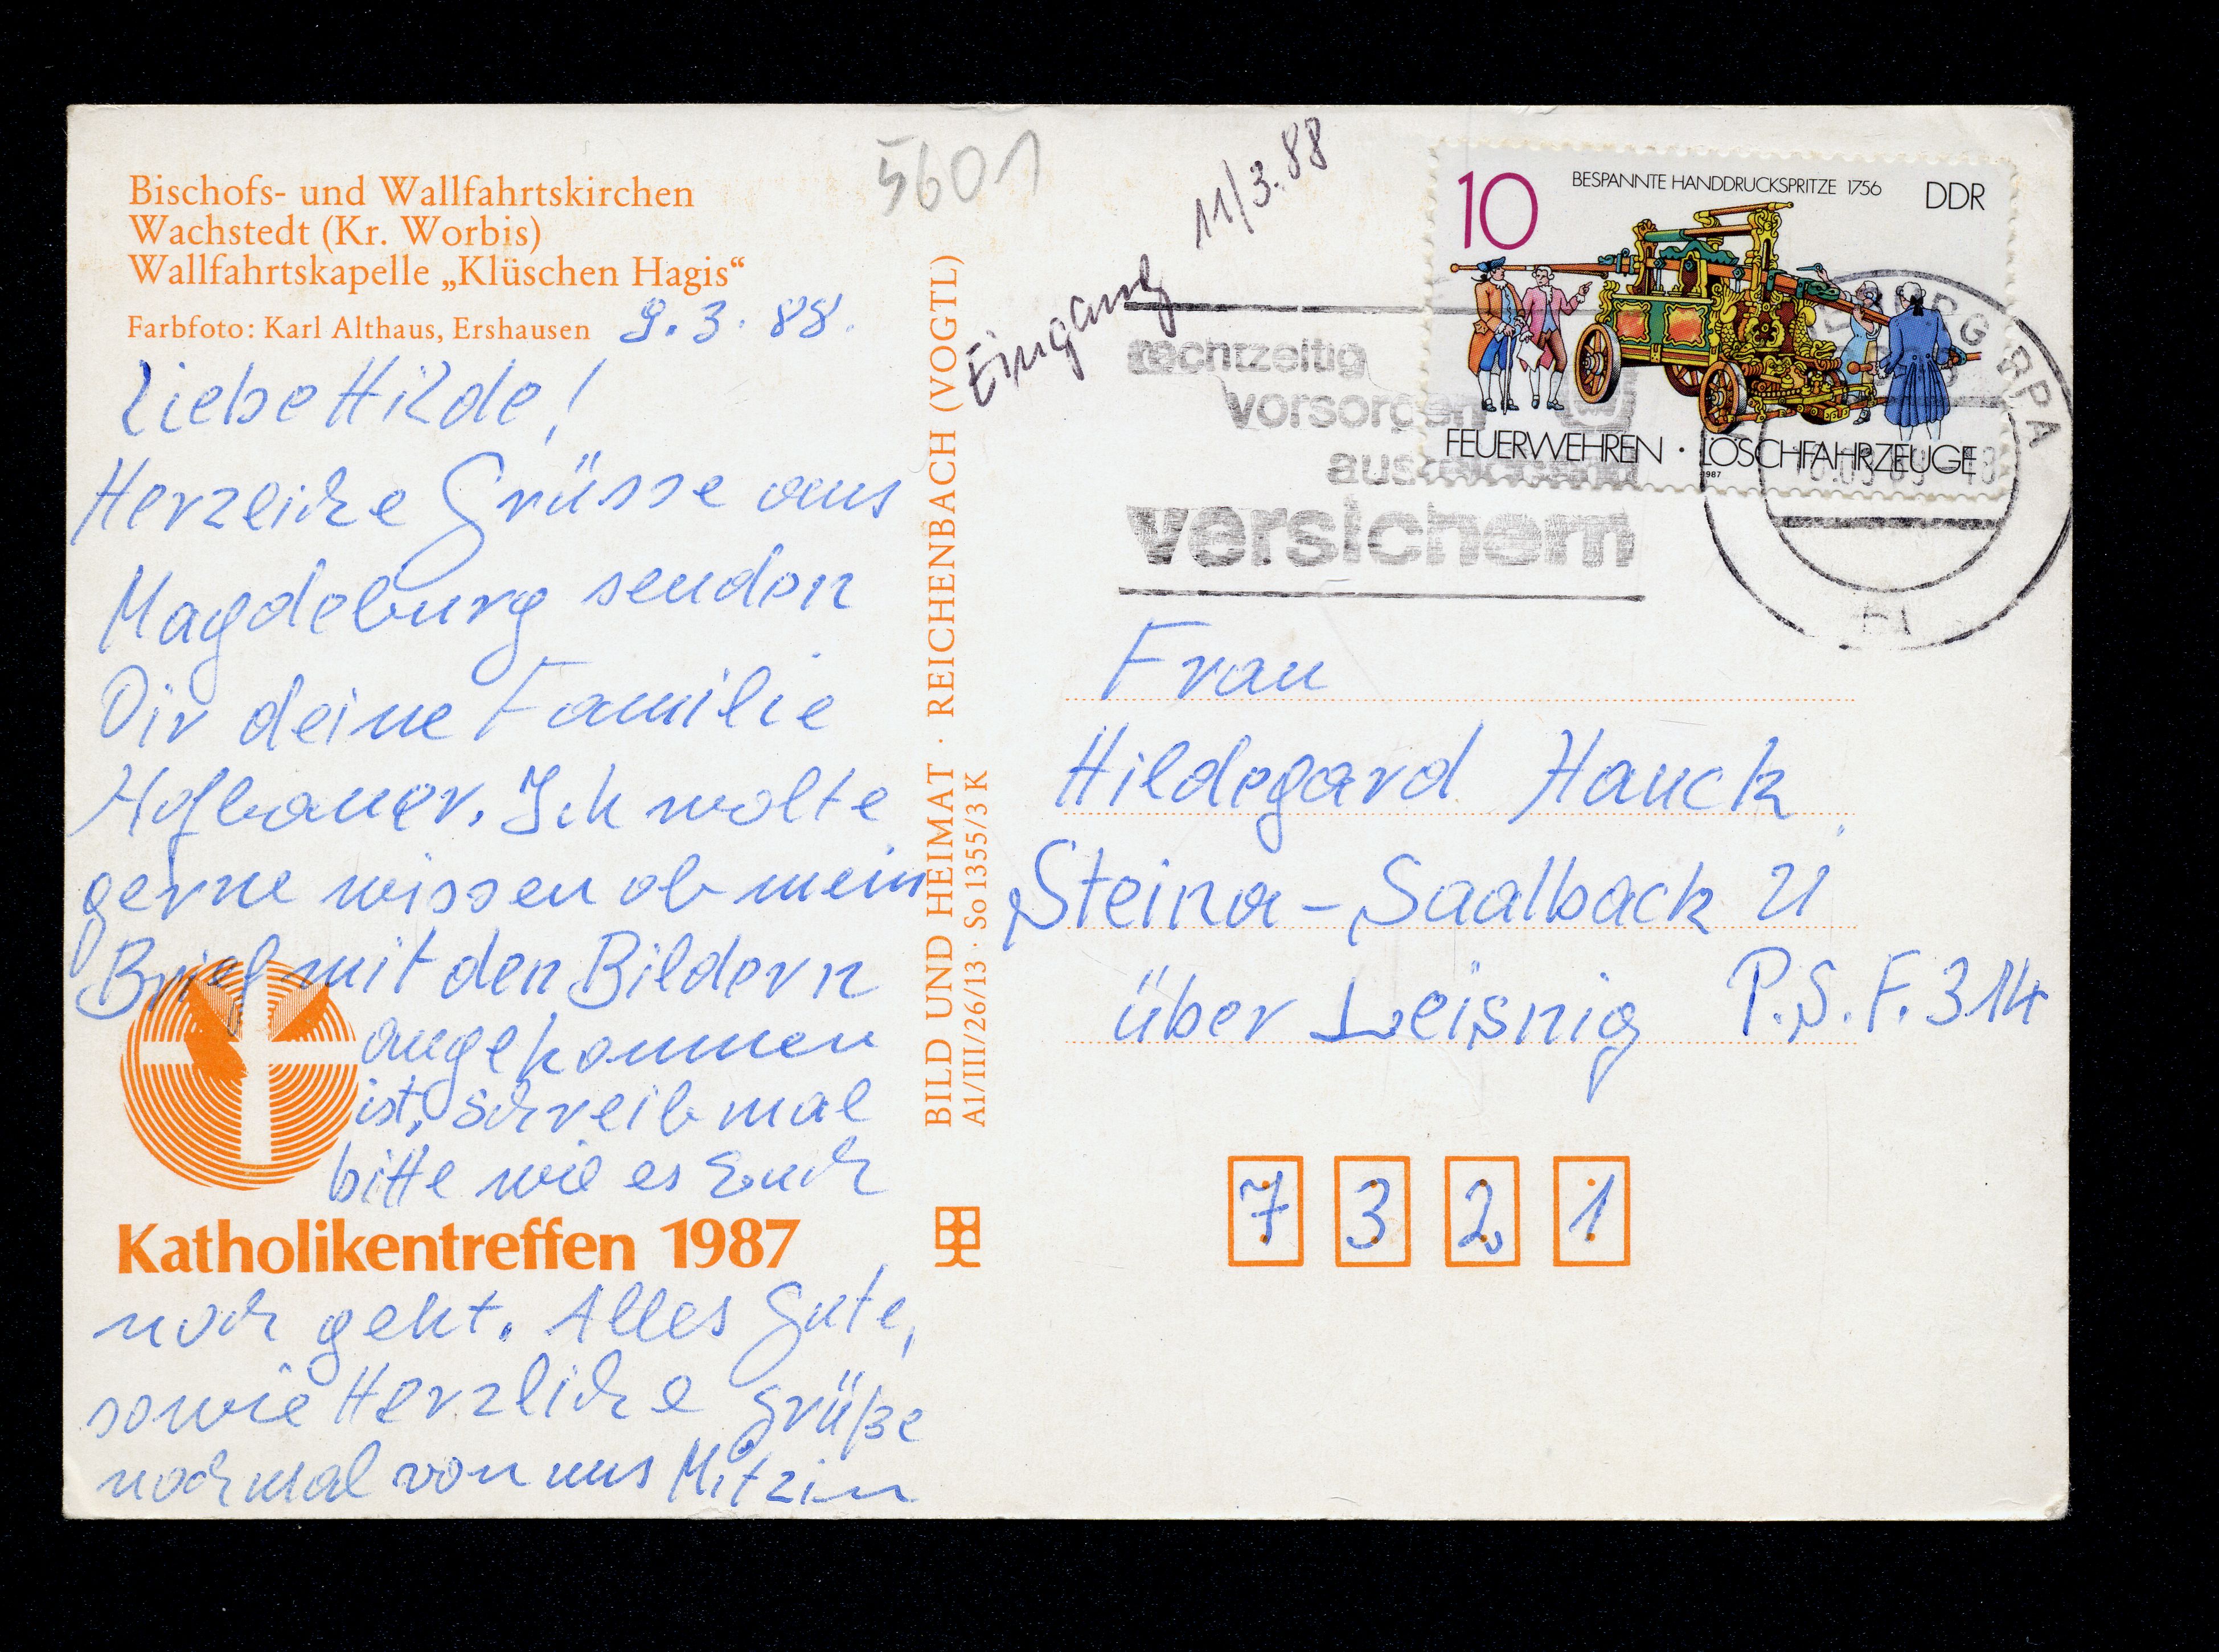 Bischofs- und Wallfahrtskirchen
Wachstedt (Kr. Worbis)
Wallfahrtskapelle „Klüschen Hagis“
Farbfoto: Karl Althaus, Ershausen
9.3.88.
Liebe Hilde!
Herzliche Grüsse aus
Magdeburg senden
Dir deine Familie
Hofbauer. Ich wolte
gerne wissen ob mein
Brief mit den Bildern
angekommen
ist, schreib mal
bitte wie es Euch
Katholikentreffen 1987
noch geht. Alles Gute,
sowie Herzliche Grüße
nochmal von uns Mitzin
BILD UND HEIMAT · REICHENBACH (VOGTL)
A1/III/26/13 · So 1355/3 K
5601
Eingang 11/3.88
10
BESPANNTE HANDDRUCKSPRITZE 1756
DDR
FEUERWEHREN · LÖSCHFAHRZEUGE
1987
rechtzeitig
vorsorgen
versichern
BPA
Frau
Hildegard Hauck
Steina-Saalback
über Leisnig P.S.F. 314
7 3 2 1